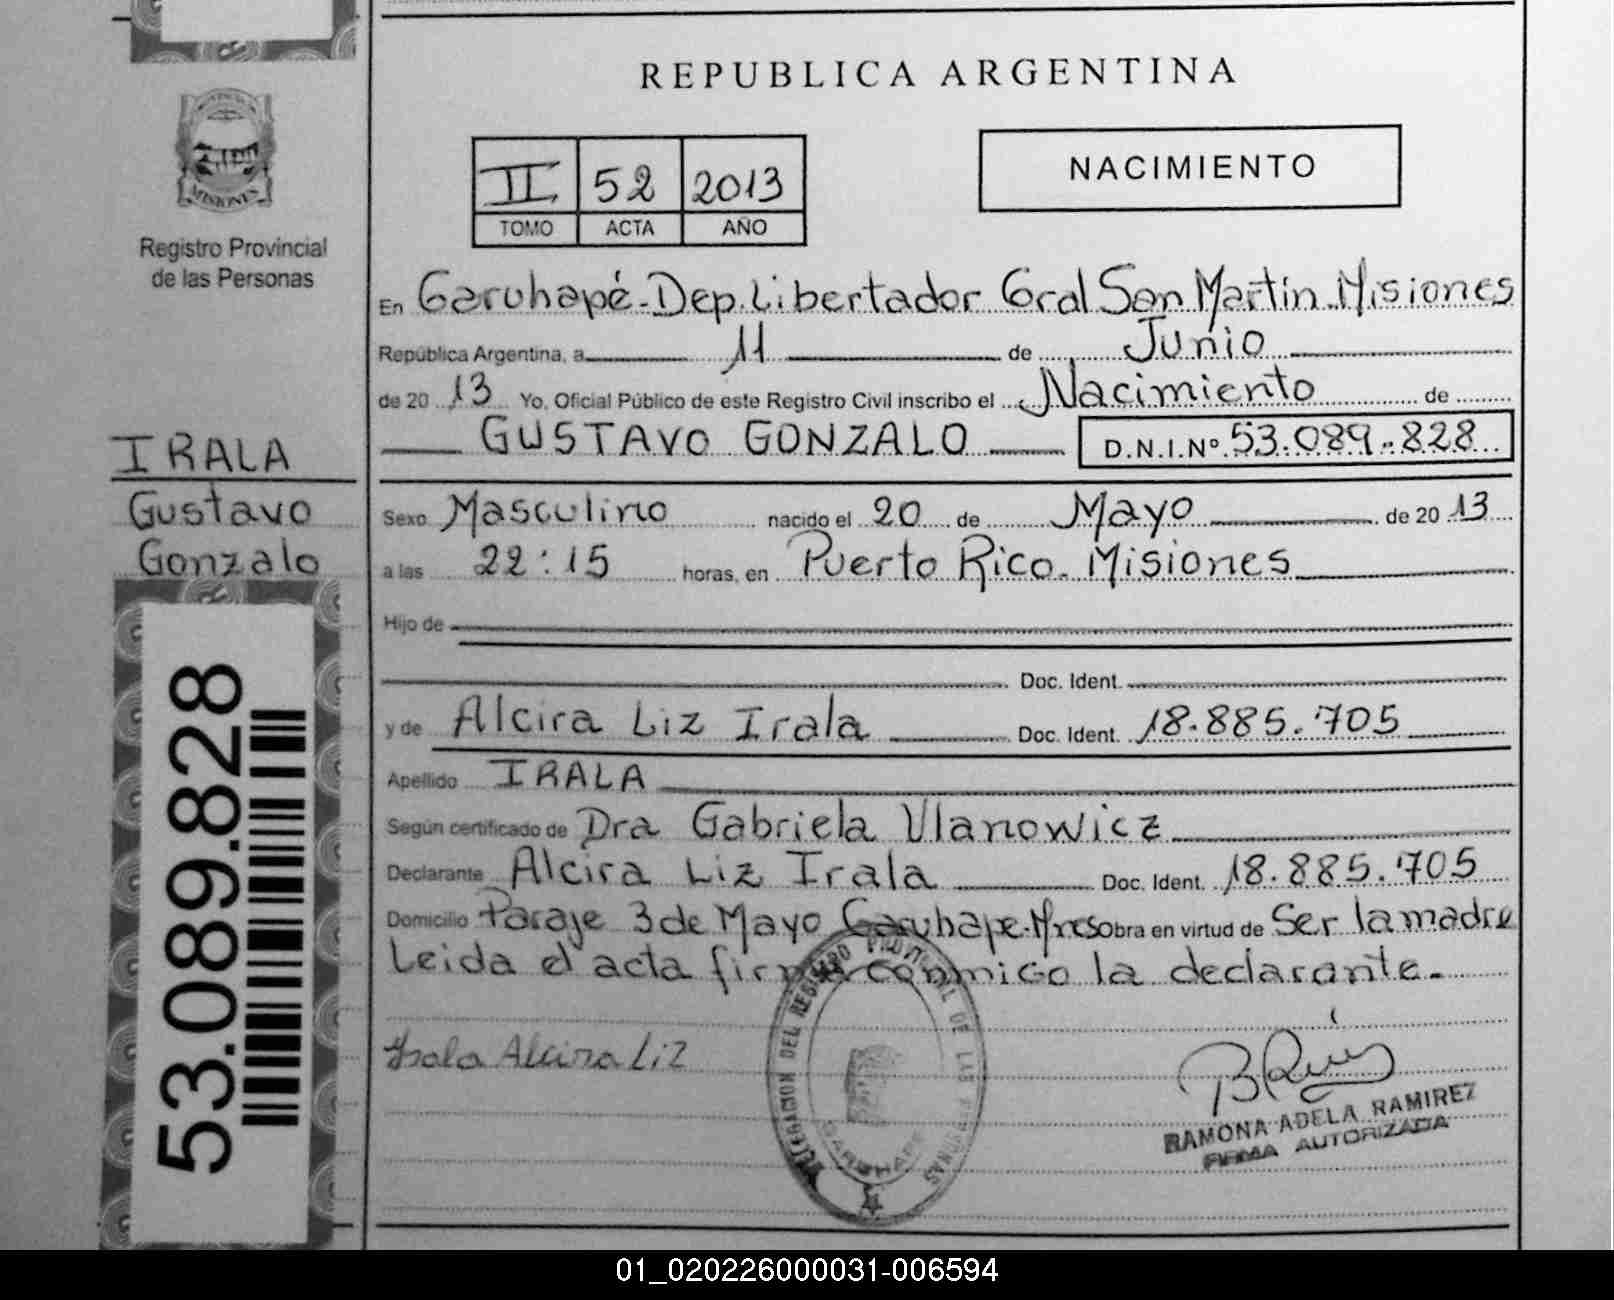 REPUBLICA ARGENTINA
II 52 2013
TOMO ACTA AÑO
NACIMIENTO
MISIONES
Registro Provincial
de las Personas
IRALA
Gustavo
Gonzalo
53.089.828
En Garuhapé-Dep.Libertador Gral San Martín.Misiones
República Argentina, a 11 de Junio
de 20 13 Yo, Oficial Público de este Registro Civil inscribo el Nacimiento de
GUSTAVO GONZALO D.N.I.Nº 53.089.828
Sexo Masculino nacido el 20 de Mayo de 20 13
a las 22:15 horas, en Puerto Rico. Misiones
Hijo de
Doc. Ident.
y de Alcira Liz Irala Doc. Ident. 18.885.705
Apellido IRALA
Según certificado de Dra Gabriela Ulanowicz
Declarante Alcira Liz Irala Doc. Ident. 18.885.705
Domicilio Paraje 3 de Mayo Garuhape-Mnes Obra en virtud de Ser la madre
Leida el acta firma conmigo la declarante.
Irala Alcira Liz
DELEGACION DEL REGISTRO PROVINCIAL DE LAS PERSONAS
GARUHAPE
RAMONA ADELA RAMIREZ
FIRMA AUTORIZADA
01_020226000031-006594